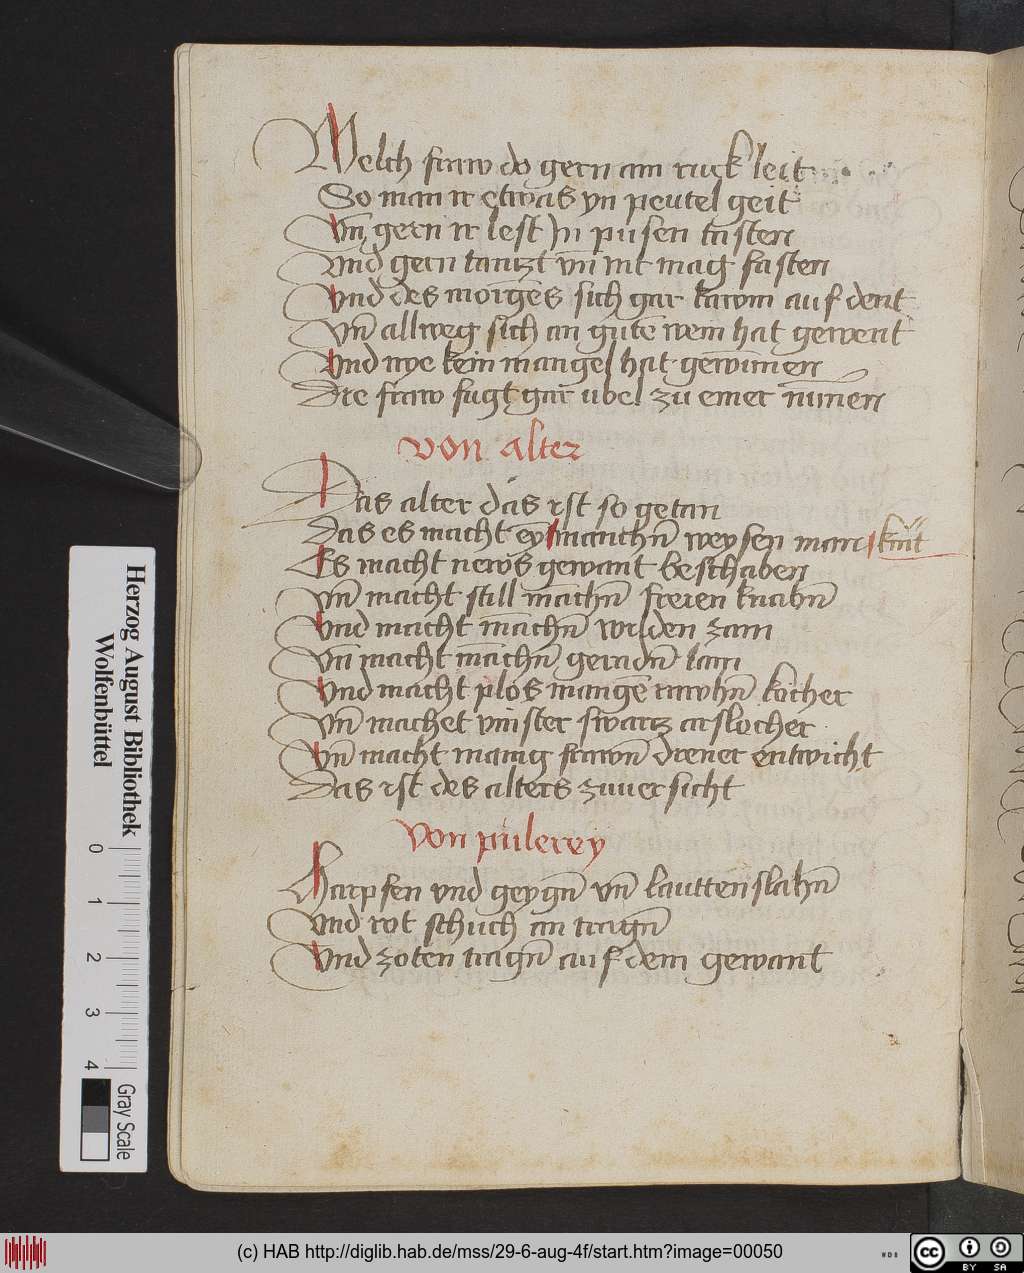 Welch fraw do gern am ruck leit
So man ir etwas yn peutel geit
Vn̄ gern ir lest Jn pusen tasten
Vnd gern tantzt vn̄ nit mag fasten
Vnd des morgēs sich gar kawm auf dent
Vn̄ allweg sich an gutē wein hat gewent
Vnd nye kein mangel hat gewūnen
Die fraw fugt gar ubel zu einer nūnen
Von alter
Das alter das ist so getan
Das es macht eȳ manchn̄ weysen man kint
Es macht news gewant beschaben
Vn̄ macht still māchn̄ freien knabn̄
Vnd macht māchn̄ wilden zam
Vn̄ macht māchn̄ geradn̄ lam
Vnd macht plos mangē rawhn̄ kocher
Vn̄ machet vinster swartz arslocher
Vn̄ macht manig frawn̄ diener entwicht
Das ist des alters zuuersicht
Von pulerey
Harpfen vnd geygn̄ vn̄ lauttenslahn̄
Vnd rot schuch an tragn̄
Vnd zoten tragn̄ auf dem gewant
Herzog August Bibliothek
Wolfenbüttel
0 1 2 3 4
Gray Scale
(c) HAB http://diglib.hab.de/mss/29-6-aug-4f/start.htm?image=00050
WDB
cc BY SA